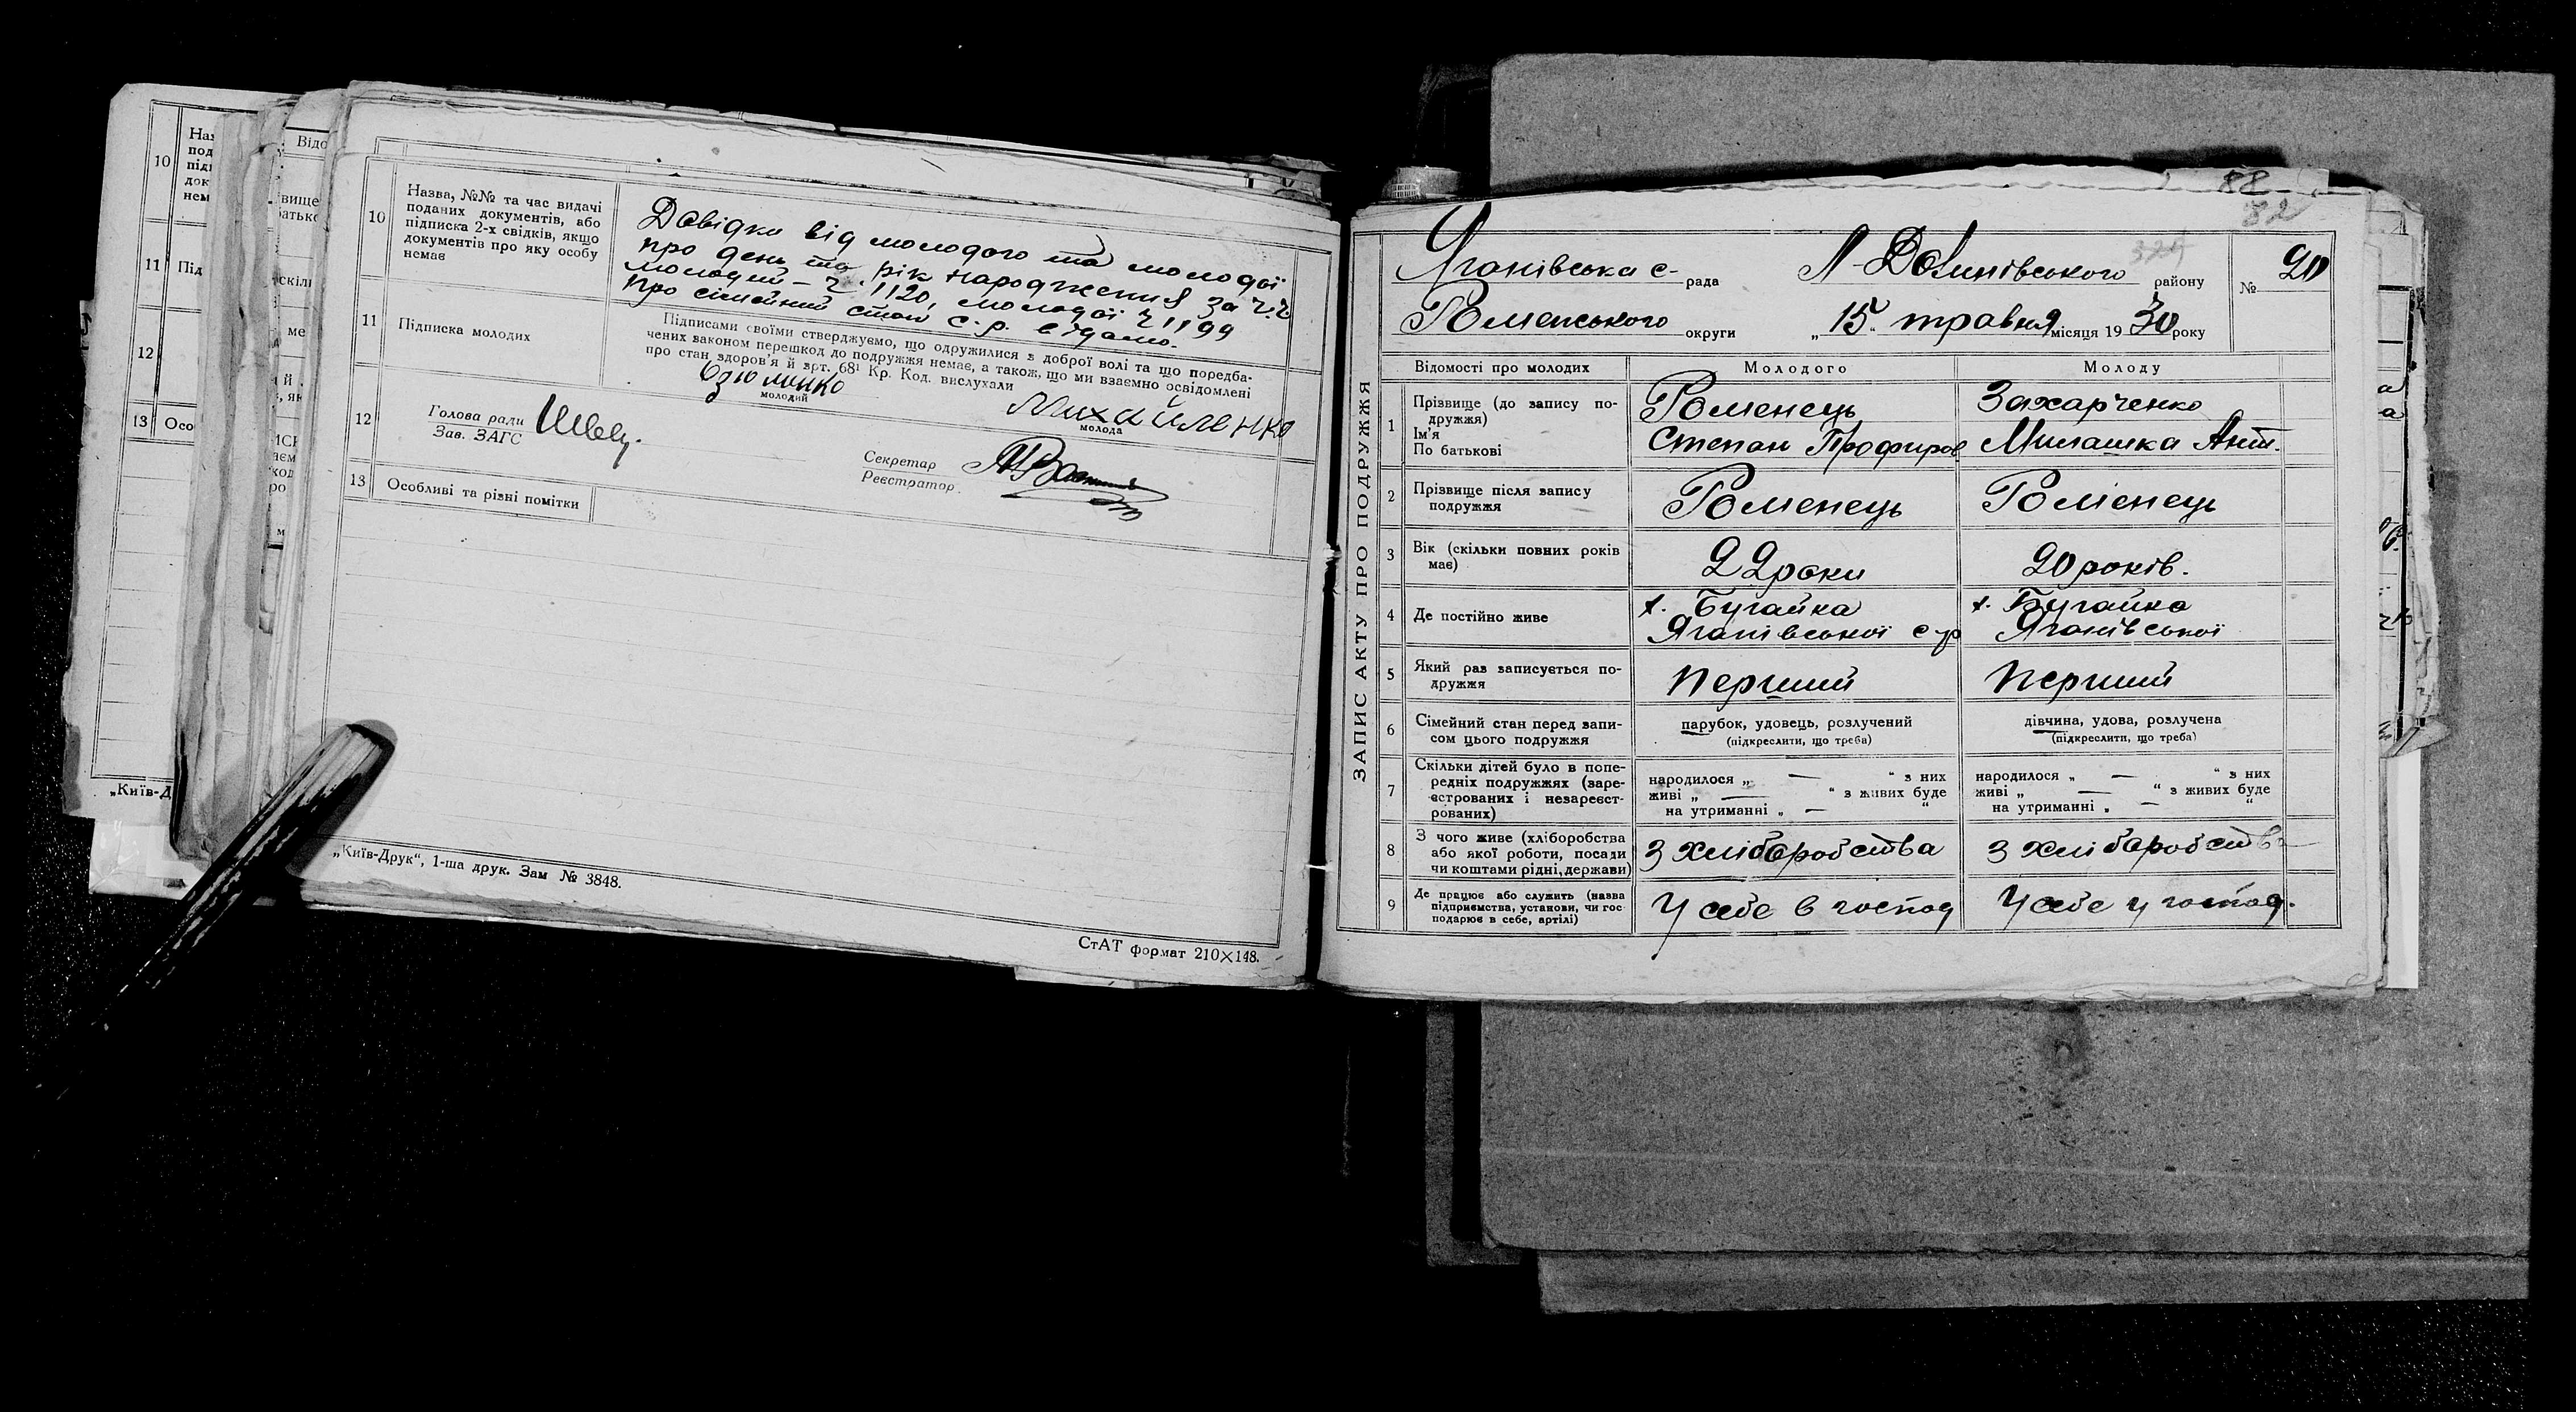 10
Назва, №№ та час видачі
поданих документів, або
підписка 2-х свідків, якщо
документів про яку особу
немає
Довідки від молодого та молодої
про день та рік народження за ч.ч.
молодий - ч. 1120, молодої ч 1199
про сімейний стан с.р. відомо.
11
Підписка молодих
Підписами своїми стверджуємо, що одружилися з доброї волі та що поредба-
чених законом перешкод до подружжя немає, а також, що ми взаємно освідомлені
про стан здоров'я й арт. 68¹ Кр. Код. вислухали
молодий
Михайленко
молода
12
Голова ради
Зав. ЗАГС
Швец.
Секретар
Реєстратор.
13
Особливі та різні помітки
„Київ-Друк“, 1-ша друк. Зам № 3848.
СтАТ формат 210×148.
10
11
Під
12
13
Осо
„Київ-Д
88
82
324
Яганівська с- рада
Л-Долинівського району
№ 20
Роменського округи
„15“ травня місяця 1930 року
ЗАПИС АКТУ ПРО ПОДРУЖЖЯ
Відомості про молодих
Молодого
Молоду
1
Прізвище (до запису по-
дружжя)
Ім'я
По батькові
Роменець
Степан Профиров
Захарченко
Милашка Ант.
2
Прізвище після запису
подружжя
Роменець
Роменець
3
Вік (скільки повних років
має)
22 роки
20 років.
4
Де постійно живе
х. Бугайка
Яганівської с-р
х. Бугайка
Яганівської
5
Який раз записується по-
дружжя
перший
перший
6
Сімейний стан перед запи-
сом цього подружжя
парубок, удовець, розлучений
(підкреслити, що треба)
дівчина, удова, розлучена
(підкреслити, що треба)
7
Скільки дітей було в попе-
редніх подружжях (заре-
єстрованих і незареєст-
рованих)
народилося „ — “ з них
живі „ — “ з живих буде
на утриманні „ — “
народилося „ — “ з них
живі „ — “ з живих буде
на утриманні „ — “
8
З чого живе (хліборобства
або якої роботи, посади
чи коштами рідні, держави)
З хліборобства
З хліборобства
9
Де працює або служить (назва
підприємства, установи, чи гос
подарює в себе, артілі)
У себе в господ
У себе у господ.